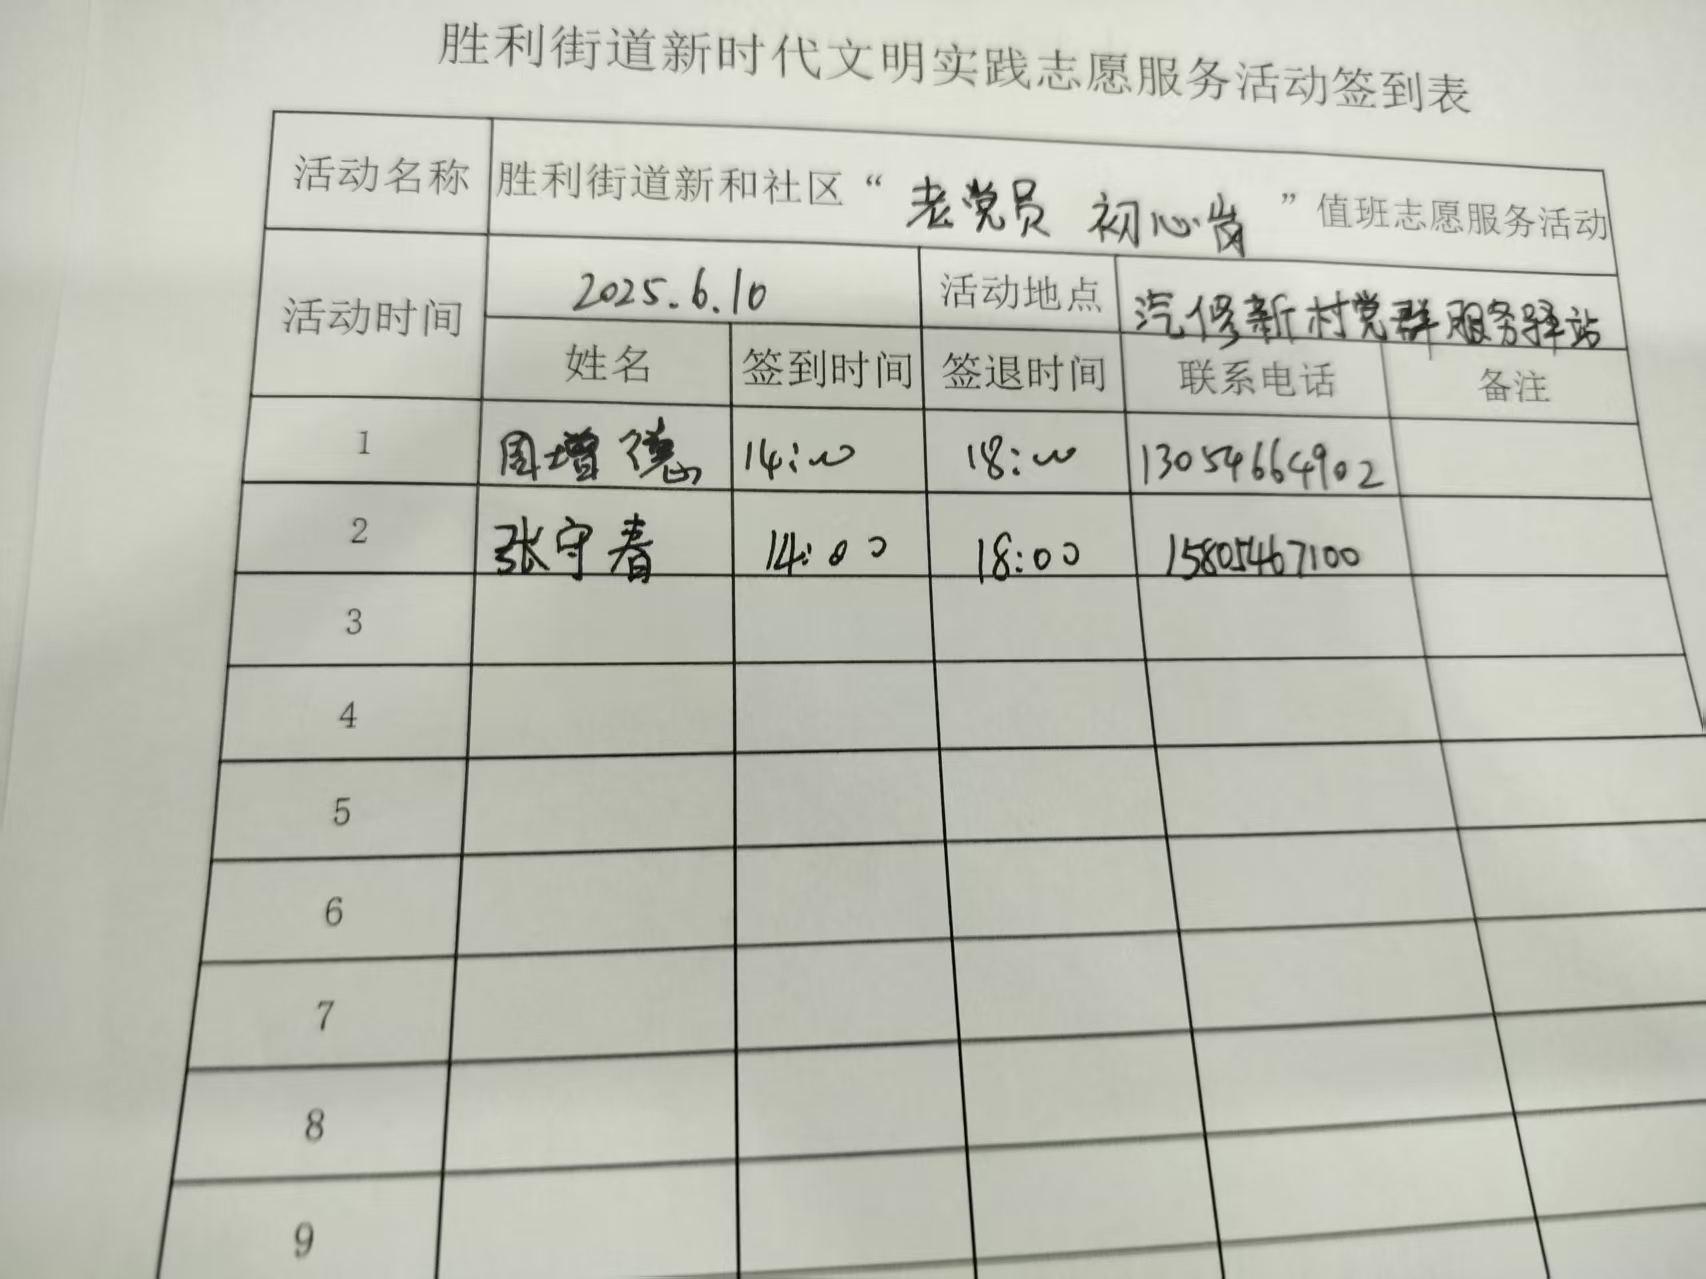 胜利街道新时代文明实践志愿服务活动签到表
活动名称 胜利街道新和社区“老党员 初心岗”值班志愿服务活动
活动时间 2025.6.10 活动地点 汽修新村党群服务驿站
姓名 签到时间 签退时间 联系电话 备注
1 周增德 14:00 18:00 13054664902
2 张守春 14:00 18:00 15805467100
3
4
5
6
7
8
9